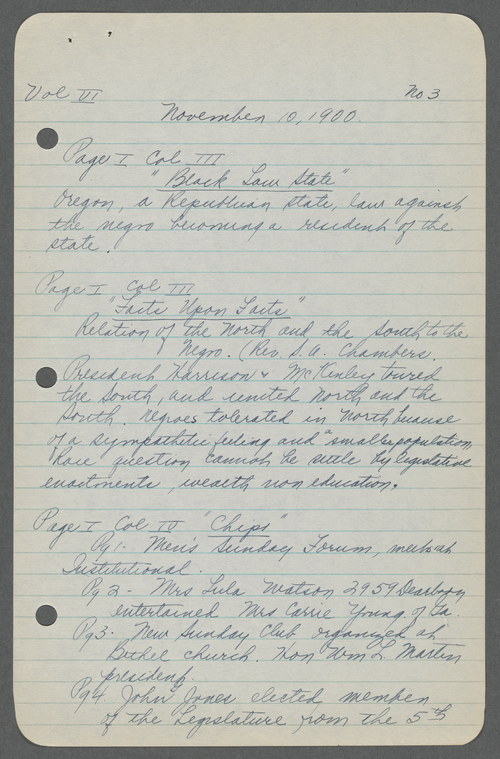 Vol VI No 3
November 10, 1900
Page I Col III
"Black Law State"
Oregon, a Republican state, law against
the negro becoming a resident of the
state.
Page I Col III
"Facts Upon Facts"
Relation of the North and the South to the
Negro. (Rev. S. A. Chambers.
President Harrison & McKinley toured
the South, and united North and the
South. Negroes tolerated in North because
of a sympathetic feeling and "smaller population
Race question cannot be settle by legislative
enactments, wealth nor education.
Page I Col IV "Chips"
Pg 1. Men's Sunday Forum, meets at
Institutional.
Pg 2 - Mrs Lula Watson 2959 Dearborn
entertained Mrs Carrie Young of Ga.
Pg 3. New Sunday Club organized at
Bethel church. Hon Wm L. Martin
president.
Pg 4. John Jones elected member
of the Legislature from the 5th